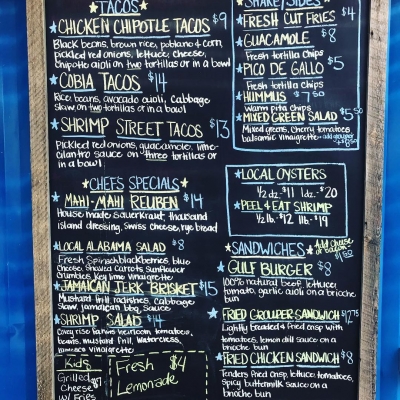 TACOS
CHICKEN CHIPOTLE TACOS $9
Black beans, brown rice, poblano & corn,
pickled red onions, lettuce, cheese,
chipotle aioli on two tortillas or in a bowl
COBIA TACOS $14
Rice, beans, avocado aioli, cabbage
slaw on two tortillas or in a bowl
SHRIMP STREET TACOS $13
Pickled red onions, guacamole, lime-
cilantro sauce on three tortillas or
in a bowl
CHEF'S SPECIALS
MAHI-MAHI REUBEN $14
House made sauerkraut, thousand
island dressing, swiss cheese, rye bread
LOCAL ALABAMA SALAD $8
Fresh Spinach, blackberries, blue
Cheese, shaved carrots, sunflower
crumbles, key lime vinaigrette
JAMAICAN JERK BRISKET $15
Mustard frill, radishes, cabbage
slaw, jamaican bbq sauce
SHRIMP SALAD $14
heirloom, tomatoes,
beans, mustard frill, watercress,
vinaigrette
Kids
Grilled
Cheese
w/ Fries
Fresh $4
Lemonade
SHARE/SIDES
FRESH CUT FRIES $4
GUACAMOLE $8
Fresh tortilla chips
PICO DE GALLO $5
Fresh tortilla chips
HUMMUS $7.50
Warm pita chips
MIXED GREEN SALAD $5.50
Mixed greens, cherry tomatoes
balsamic vinaigrette - add grouper
LOCAL OYSTERS
1/2 dz. $11 1dz. $20
PEEL & EAT SHRIMP
1/2 lb. $12 lb. $19
SANDWICHES Add cheese
or bacon
GULF BURGER $8
100% natural beef, lettuce
tomato, garlic aioli on a brioche
bun
FRIED GROUPER SANDWICH $12.75
Lightly breaded & fried crisp with
tomatoes, lemon dill sauce on a
brioche bun
FRIED CHICKEN SANDWICH $8
Tenders fried crisp, lettuce, tomatoes,
spicy buttermilk sauce on a
brioche bun